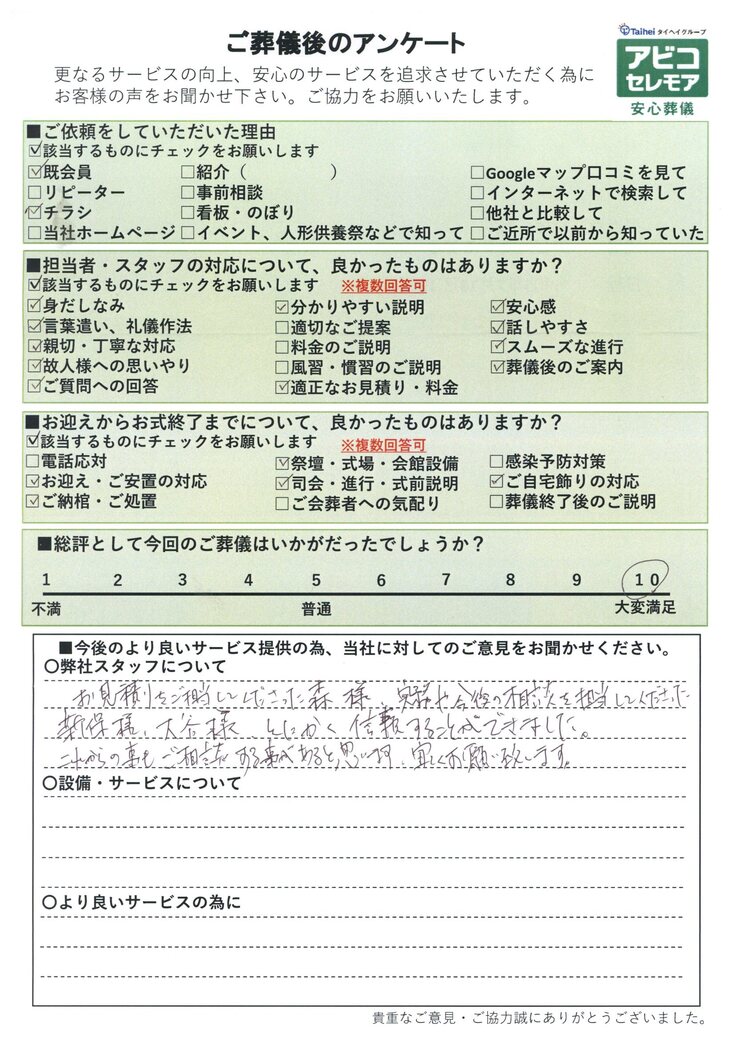 ご葬儀後のアンケート
Taihei タイヘイグループ
アビコ
セレモア
安心葬儀
更なるサービスの向上、安心のサービスを追求させていただく為に
お客様の声をお聞かせ下さい。ご協力をお願いいたします。
■ご依頼をしていただいた理由
☑該当するものにチェックをお願いします
☑既会員 □紹介（　　　　　） □Googleマップ口コミを見て
□リピーター □事前相談 □インターネットで検索して
☑チラシ □看板・のぼり □他社と比較して
□当社ホームページ □イベント、人形供養祭などで知って □ご近所で以前から知っていた
■担当者・スタッフの対応について、良かったものはありますか？
☑該当するものにチェックをお願いします ※複数回答可
☑身だしなみ ☑分かりやすい説明 ☑安心感
☑言葉遣い、礼儀作法 □適切なご提案 ☑話しやすさ
☑親切・丁寧な対応 □料金のご説明 ☑スムーズな進行
☑故人様への思いやり □風習・慣習のご説明 ☑葬儀後のご案内
☑ご質問への回答 ☑適正なお見積り・料金
■お迎えからお式終了までについて、良かったものはありますか？
☑該当するものにチェックをお願いします ※複数回答可
□電話応対 ☑祭壇・式場・会館設備 □感染予防対策
☑お迎え・ご安置の対応 ☑司会・進行・式前説明 ☑ご自宅飾りの対応
☑ご納棺・ご処置 □ご会葬者への気配り □葬儀終了後のご説明
■総評として今回のご葬儀はいかがだったでしょうか？
1 2 3 4 5 6 7 8 9 10
不満 普通 大変満足
■今後のより良いサービス提供の為、当社に対してのご意見をお聞かせください。
〇弊社スタッフについて
お見積りをご担当してくださった森様、実務や今後の相談を担当してくださった
新保様、大谷様、とにかく信頼することができました。
これからの事もご相談する事があると思います、宜しくお願い致します。
〇設備・サービスについて
〇より良いサービスの為に
貴重なご意見・ご協力誠にありがとうございました。